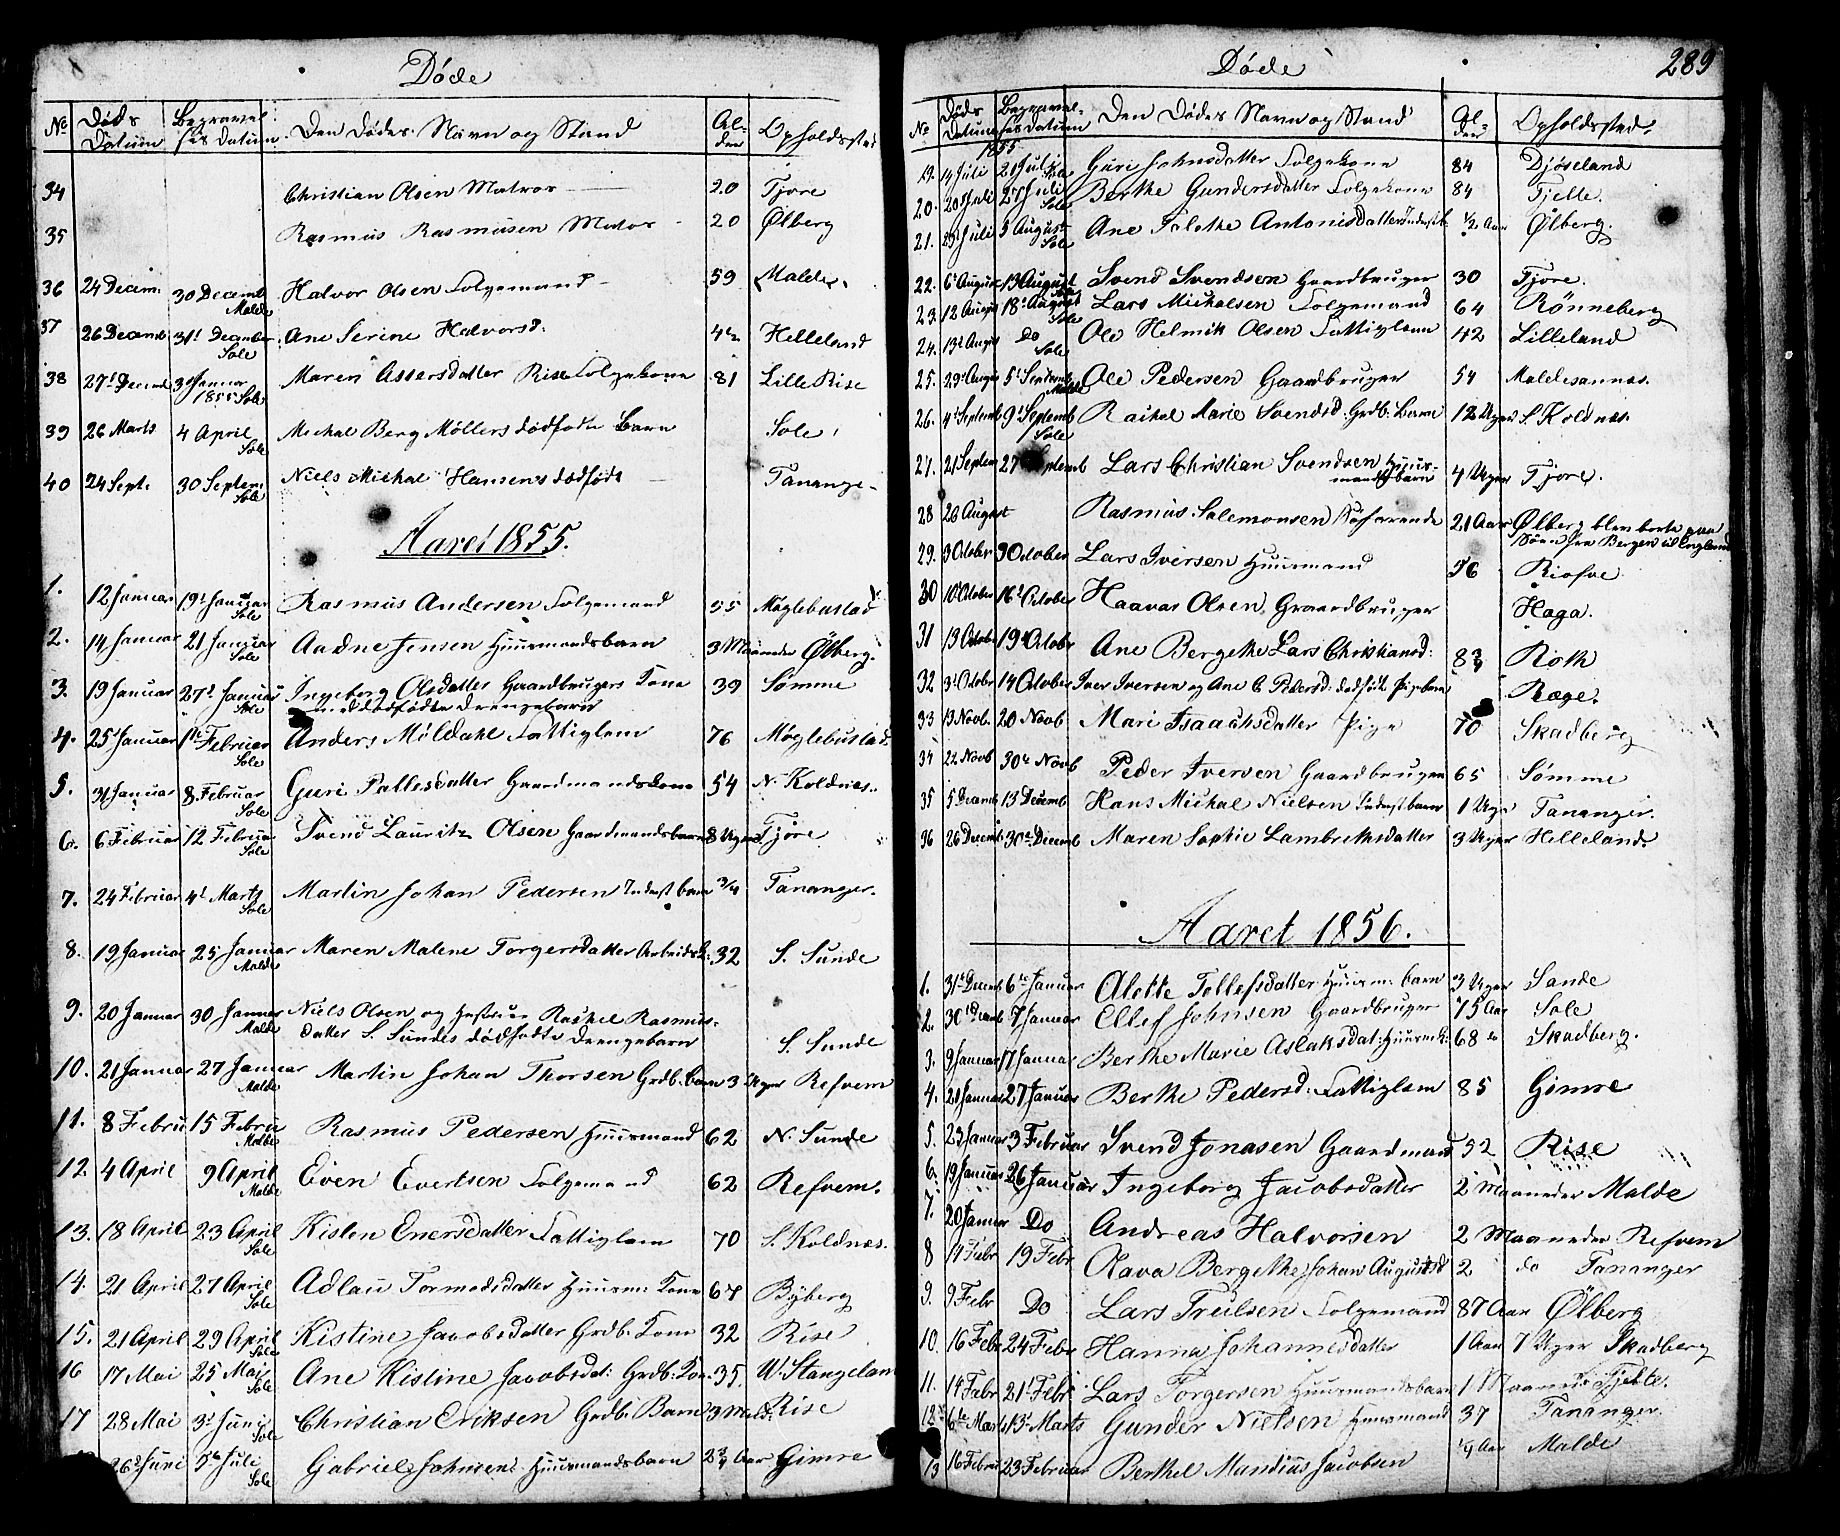 Døde
No Døds Datum Begravelses Datum Den Dødes Navn og Stand Alder Opholdssted
34 Christian Olsen Matros 20 Tjore
35 Rasmus Rasmusen Matros 20 Ølberg
36 24 Decem. 30 Decemb Malde Halvor Olsen Folgemand 59 Malde.
37 26 Decemb 31t December Sole Ane Serine Halvorsd: Helleland
38 27t Decemb 3d Januar 1855 Sole Maren Assersdatter Rise Folgekone 81 Lille Rise
39 26 Marts 4 April Sole Michal Berg Möllers dødfødte Barn Sole
40 24 Sept. 30 Septem Sole Niels Michal Hansens dødfødt Tananger
Aaret 1855.
1. 12 Januar 19t Januar Sole Rasmus Andersen Folgemand 55 Møglebustad
2. 14 Januar 21 Januar Sole Aadne Jensen Huusmandsbarn 3 Maaneder Ølberg.
3. 19 Januar 27d Januar Sole Ingeborg Olsdatter Gaardbrugers Kone 39 Sømme
dødfødte Drengebarn
4. 25t Januar 1te Februar Sole Anders Möldahl Fattiglem 76 Møglebustad
5. 31 Januar 8 Februar Sole Guri Pallesdatter Gaardmandskone 54 N. Koldnes.
6. 6 Februar 12 Februar Sole Svend Lauritz Olsen Gaardmandsbarn 8 Uger Tjore
7. 24 Februar 4t Marts Sole Martin Johan Pedersen Inderstbarn 3/4 Tananger.
8. 19 Januar 25 Januar Malde Maren Malene Torgersdatter Arbeids K: 32 S. Sunde
9. 20 Januar 30 Januar Malde Niels Olsen og Hustrue Raskel Rasmus-
datter S. Sundes dødfødte Drengebarn S. Sunde
10. 21 Januar 27 Januar Malde Martin Johan Thorsen Grdb. barn 3 Uger Refvem
11. 8 Febru 15 Febru Malde Rasmus Pedersen Huusmand 62 N. Sunde
12. 4 April 9 April Malde Even Evertsen Folgemand 62 Refvem.
13. 18 April 23 April Sole Kisten Enersdatter Fattiglem 70 S. Koldnes.
14. 21 April 27 April Sole Adlau Tormodsdatter Huusm: Kone 67 Byberg
15. 21 April 29 April Sole Kistine Jacobsdatter Grdb: Kone 32 Rise
16 17 Mai 25 Mai Sole Ane Kistine Jacobsdat: Grdb: Kone 35. W. Stangelan
17 28 Mai 3d Juni Sole Christian Eriksen Grdb: Barn Rise
26d Juni 5te Juli Sole Gabriel Johnsen Huusmandsbarn Aar Gimre
Døde 289
No Døds Datum Begravelses Datum Den Dødes Navn og Stand Alder Opholdssted.
1855
19. 14 Juli 21 Juli Sole Guri Johnsdatter Folgekone 84 Djøseland
20. 20 Juli 27 Juli Sole Berthe Gundersdatter Folgekone 84 Tjelle.
21. Juli 3 August Sole Ane Antonisdatter 1/2 Aar Ølberg.
22. 6t August 13 August Svend Svendsen Gaardbruger 30 Tjore.
23. 12 August 18t August Sole Lars Michalsen Folgemand 64 Rönneberg
24. 13d August Do Sole Ole Helmik Olsen Fattiglem 42 Lilleland
25. 29t August 5t Septemb Malde Ole Pedersen Gaardbruger 54 Maldesannas.
26. 4t Septemb 9t Septemb Sole Rachel Marie Svendsd: Grdb: Barn 12 Uger S. Koldnes.
27. 21 Septem 27 Septemb Lars Christian Svendsen Huus-
mandsbarn 4 Uger Tjore.
28 20 August Rasmus Salemonsen Søfarende 21 Aar Ølberg blev borte paa
Söen fra Bergen til England
29. 3 October 9 October Lars Iversen Huusmand 56
30 10t October 16t October Haavar Olsen Gaardbruger Haga.
31 13 October 19 October Ane Bergethe Lars Christiansd: Roth
32 3d October 14 October Iver Iversen og Ane C. Pedersd: dødfødt Pigebarn Ræge.
33 13 Novb. 20 Novb Mari Isaachsdatter Pige 70 Skadberg
34 22 Novb 30te Novb Peder Iversen Gaardbruger 65 Sømme
35 5 Decemb 13 Decemb Hans Michal Nielsen Inderstbarn 1 Uge Tananger.
36 26 Decemb 30te Decemb Maren Sophie Lambrethsdatter 3 Uger Helleland.
Aaret 1856.
1. 31te Decemb 6te Januar Alette Tollefsdatter Huusm: barn 3 Uger Sande
2. 30t Decemb 7 Januar Ellef Johnsen Gaardbruger 75 Aar Sole
3. 9 Januar 17 Januar Berthe Marie Aslaksdat: Huusm: K: 68 do Skadberg.
4. 21 Januar 27 Januar Berthe Pedersd: Fattiglem 85 Gimre
5. 23 Januar 3 Februar Svend Jonasen Gaardmand 52 Rise
6. 19 Januar 26 Januar Ingeborg Jacobsdatter 2 Maaneder Malde
7. 20 Januar Do Andreas Halvorsen 2 Maaneder Refvem
8 14 Febr 19 Febr Olava Bergethe Johan Augustsd 2 do Tananger
9. 9 Febr Do Lars Trulsen Folgemand 87 Aar Ølberg
10. 16 Febr 24 Febr Hanna Johannesdatter 1 Aar 7 Uger Skadberg
11. 14 Febr 21t Febr Lars Torgersen Huusmandsbarn 1 Maaned Tjelte.
12 6te Marts 13d Marts Gunder Nielsen Huusmand 37 Tananger
13 16 Febru 23 Februar Berthel Mandius Jacobsen 1/4 Aar Malde